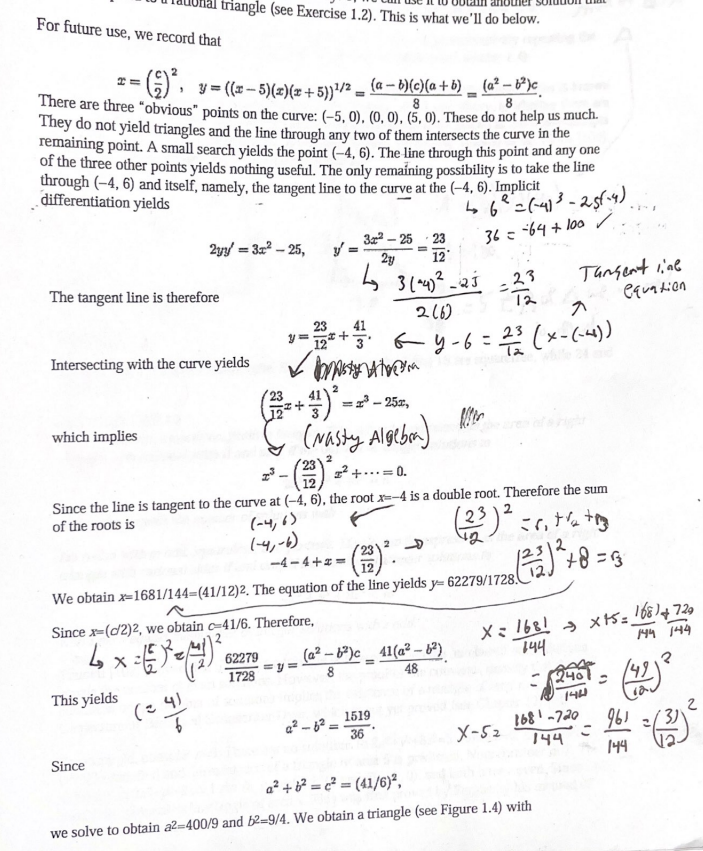 rational triangle (see Exercise 1.2). This is what we'll do below.
For future use, we record that
x = (c/2)², y = ((x − 5)(x)(x + 5))^{1/2} = (a − b)(c)(a + b)/8 = (a² − b²)c/8
There are three "obvious" points on the curve: (−5, 0), (0, 0), (5, 0). These do not help us much.
They do not yield triangles and the line through any two of them intersects the curve in the
remaining point. A small search yields the point (−4, 6). The line through this point and any one
of the three other points yields nothing useful. The only remaining possibility is to take the line
through (−4, 6) and itself, namely, the tangent line to the curve at the (−4, 6). Implicit
differentiation yields
↳ 6² = (-4)³ - 25(-4)
36 = -64 + 100 ✓
2yy' = 3x² − 25, y' = 3x² − 25/2y = 23/12.
↳ 3(-4)² - 25/2(6) = 23/12
Tangent line
equation
The tangent line is therefore
y = 23/12 x + 41/3. ← y - 6 = 23/12 (x-(-4))
Intersecting with the curve yields
(23/12 x + 41/3)² = x³ − 25x,
which implies
(Nasty Algebra)
x³ − (23/12)² x² + ··· = 0.
Since the line is tangent to the curve at (−4, 6), the root x=−4 is a double root. Therefore the sum
of the roots is
(-4, 6)
(-4, -6)
(23/12)² = r₁ + r₂ + r₃
−4 − 4 + x = (23/12)². → (23/12)² + 8 = r₃
We obtain x=1681/144=(41/12)2. The equation of the line yields y= 62279/1728.
Since x=(c/2)2, we obtain c=41/6. Therefore,
x = 1681/144 → x+5 = 1681/144 + 720/144
↳ x = (c/2)² = (41/12)²
62279/1728 = y = (a² − b²)c/8 = 41(a² − b²)/48
= 2401/144 = (49/12)²
This yields
c = 41/6
a² − b² = 1519/36.
x-5 = 1681-720/144 = 961/144 = (31/12)²
Since
a² + b² = c² = (41/6)²,
we solve to obtain a2=400/9 and b2=9/4. We obtain a triangle (see Figure 1.4) with